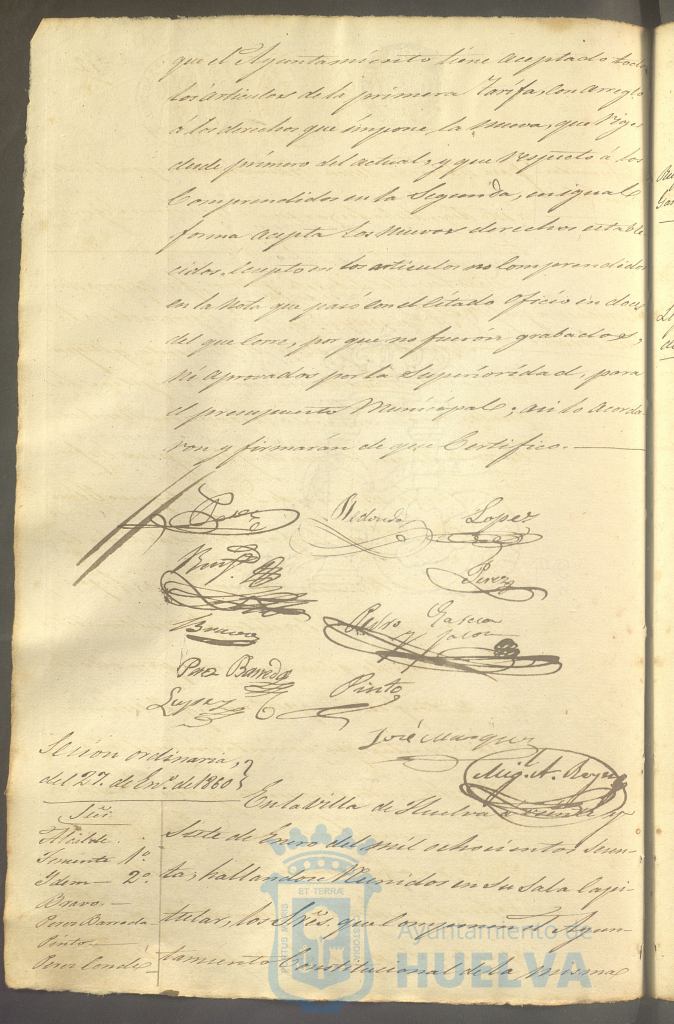 que el Ayuntamiento tiene aceptado todos
los artículos de la primera Tarifa, con arreglo
á los derechos que impone la nueva, que rije
desde primero del actual, y que respecto á los
Comprendidos en la Segunda, en igual
forma acepta los nuevos derechos estable
cidos, escepto en los artículos no Comprendidos
en la nota que pasó con el citado oficio en doce
del que corre, por que no fueron grabados,
ni aprovados por la Superioridad, para
el presupuesto Municipal; asi lo acorda
ron y firmarán de que Certifico.
Redondo Lopez
Perez
Bravo Pedro Garcia
Jalon
Pza Barreda Pinto
Lopez
José Marquez
Mig. A. Reyes
Sesion ordinaria
del 27 de Enº. de 1860
En la villa de Huelva á veinte y
Siete de Enero de mil ochocientos sesen
ta, hallandose Reunidos en su Sala Capi
tular, los Sres. que Componen el Ayun
tamiento Constitucional de la misma
Sres.
Alcalde
Teniente 1º.
Ydem 2º.
Bravo
Perez Barreda
Pinto
Perez Condé
ET TERRÆ
Ayuntamiento de
HUELVA